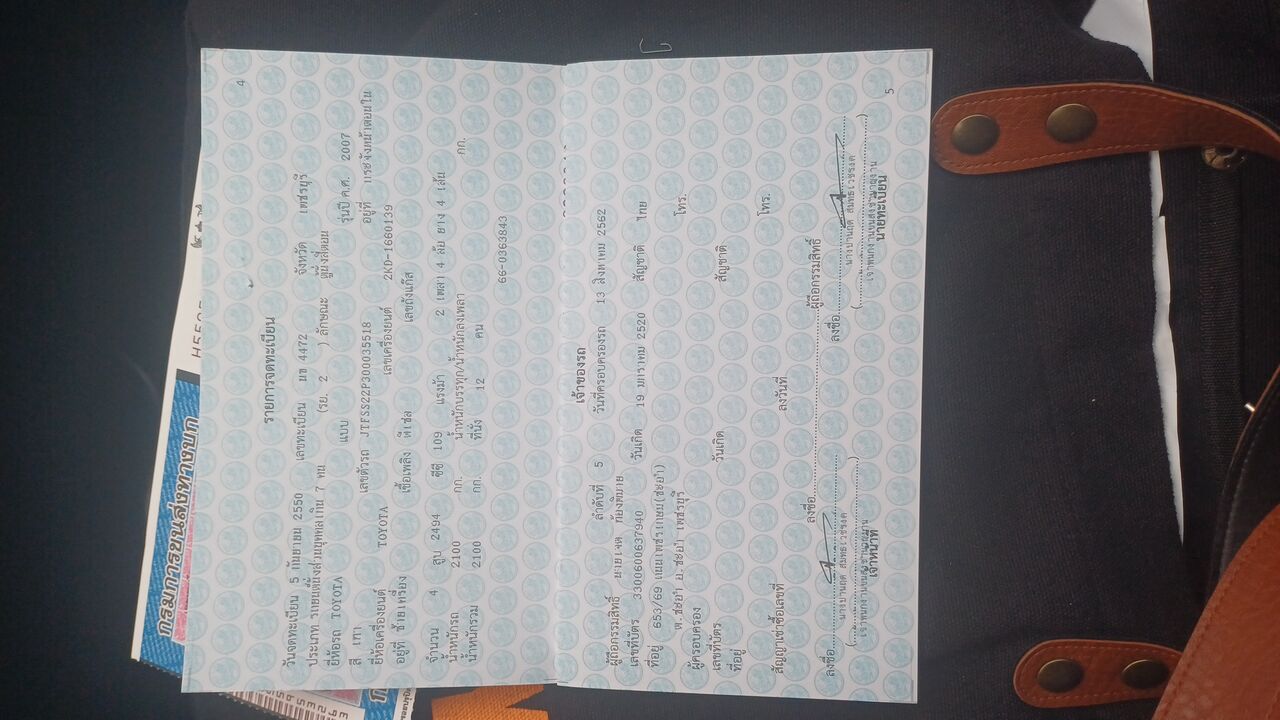 4
รายการจดทะเบียน
วันจดทะเบียน 5 กันยายน 2550 เลขทะเบียน นข 4472 จังหวัด เพชรบุรี
ประเภท รถยนต์นั่งส่วนบุคคลเกิน 7 คน (รย. 2 ) ลักษณะ ตู้นั่งสี่ตอน
ยี่ห้อรถ TOYOTA แบบ รุ่นปี ค.ศ. 2007
สี เทา เลขตัวรถ JTFSS22P300035518 อยู่ที่
ยี่ห้อเครื่องยนต์ TOYOTA เลขเครื่องยนต์ 2KD-1660139
อยู่ที่ ซ้ายเครื่อง เชื้อเพลิง ดีเซล เลขถังแก๊ส
จำนวน 4 สูบ 2494 ซีซี 109 แรงม้า 2 เพลา 4 ล้อ ยาง 4 เส้น
น้ำหนักรถ 2100 กก. น้ำหนักบรรทุก/น้ำหนักลงเพลา กก.
น้ำหนักรวม 2100 กก. ที่นั่ง 12 คน
66-0363843
เจ้าของรถ
ลำดับที่ 5 วันที่ครอบครองรถ 13 สิงหาคม 2562
ผู้ถือกรรมสิทธิ์ นายเจต ก้องพิมาย
เลขที่บัตร 3300600637940 วันเกิด 19 มกราคม 2520 สัญชาติ ไทย
ที่อยู่ 653/69 ถนนเพชรเกษม(ชะอำ)
ต.ชะอำ อ.ชะอำ เพชรบุรี โทร.
ผู้ครอบครอง
เลขที่บัตร วันเกิด สัญชาติ
ที่อยู่ โทร.
สัญญาเช่าซื้อเลขที่ ลงวันที่
ลงชื่อ ผู้ถือกรรมสิทธิ์
ลงชื่อ ลงชื่อ
เจ้าหน้าที่ นายทะเบียน
5
กรมการขนส่งทางบก